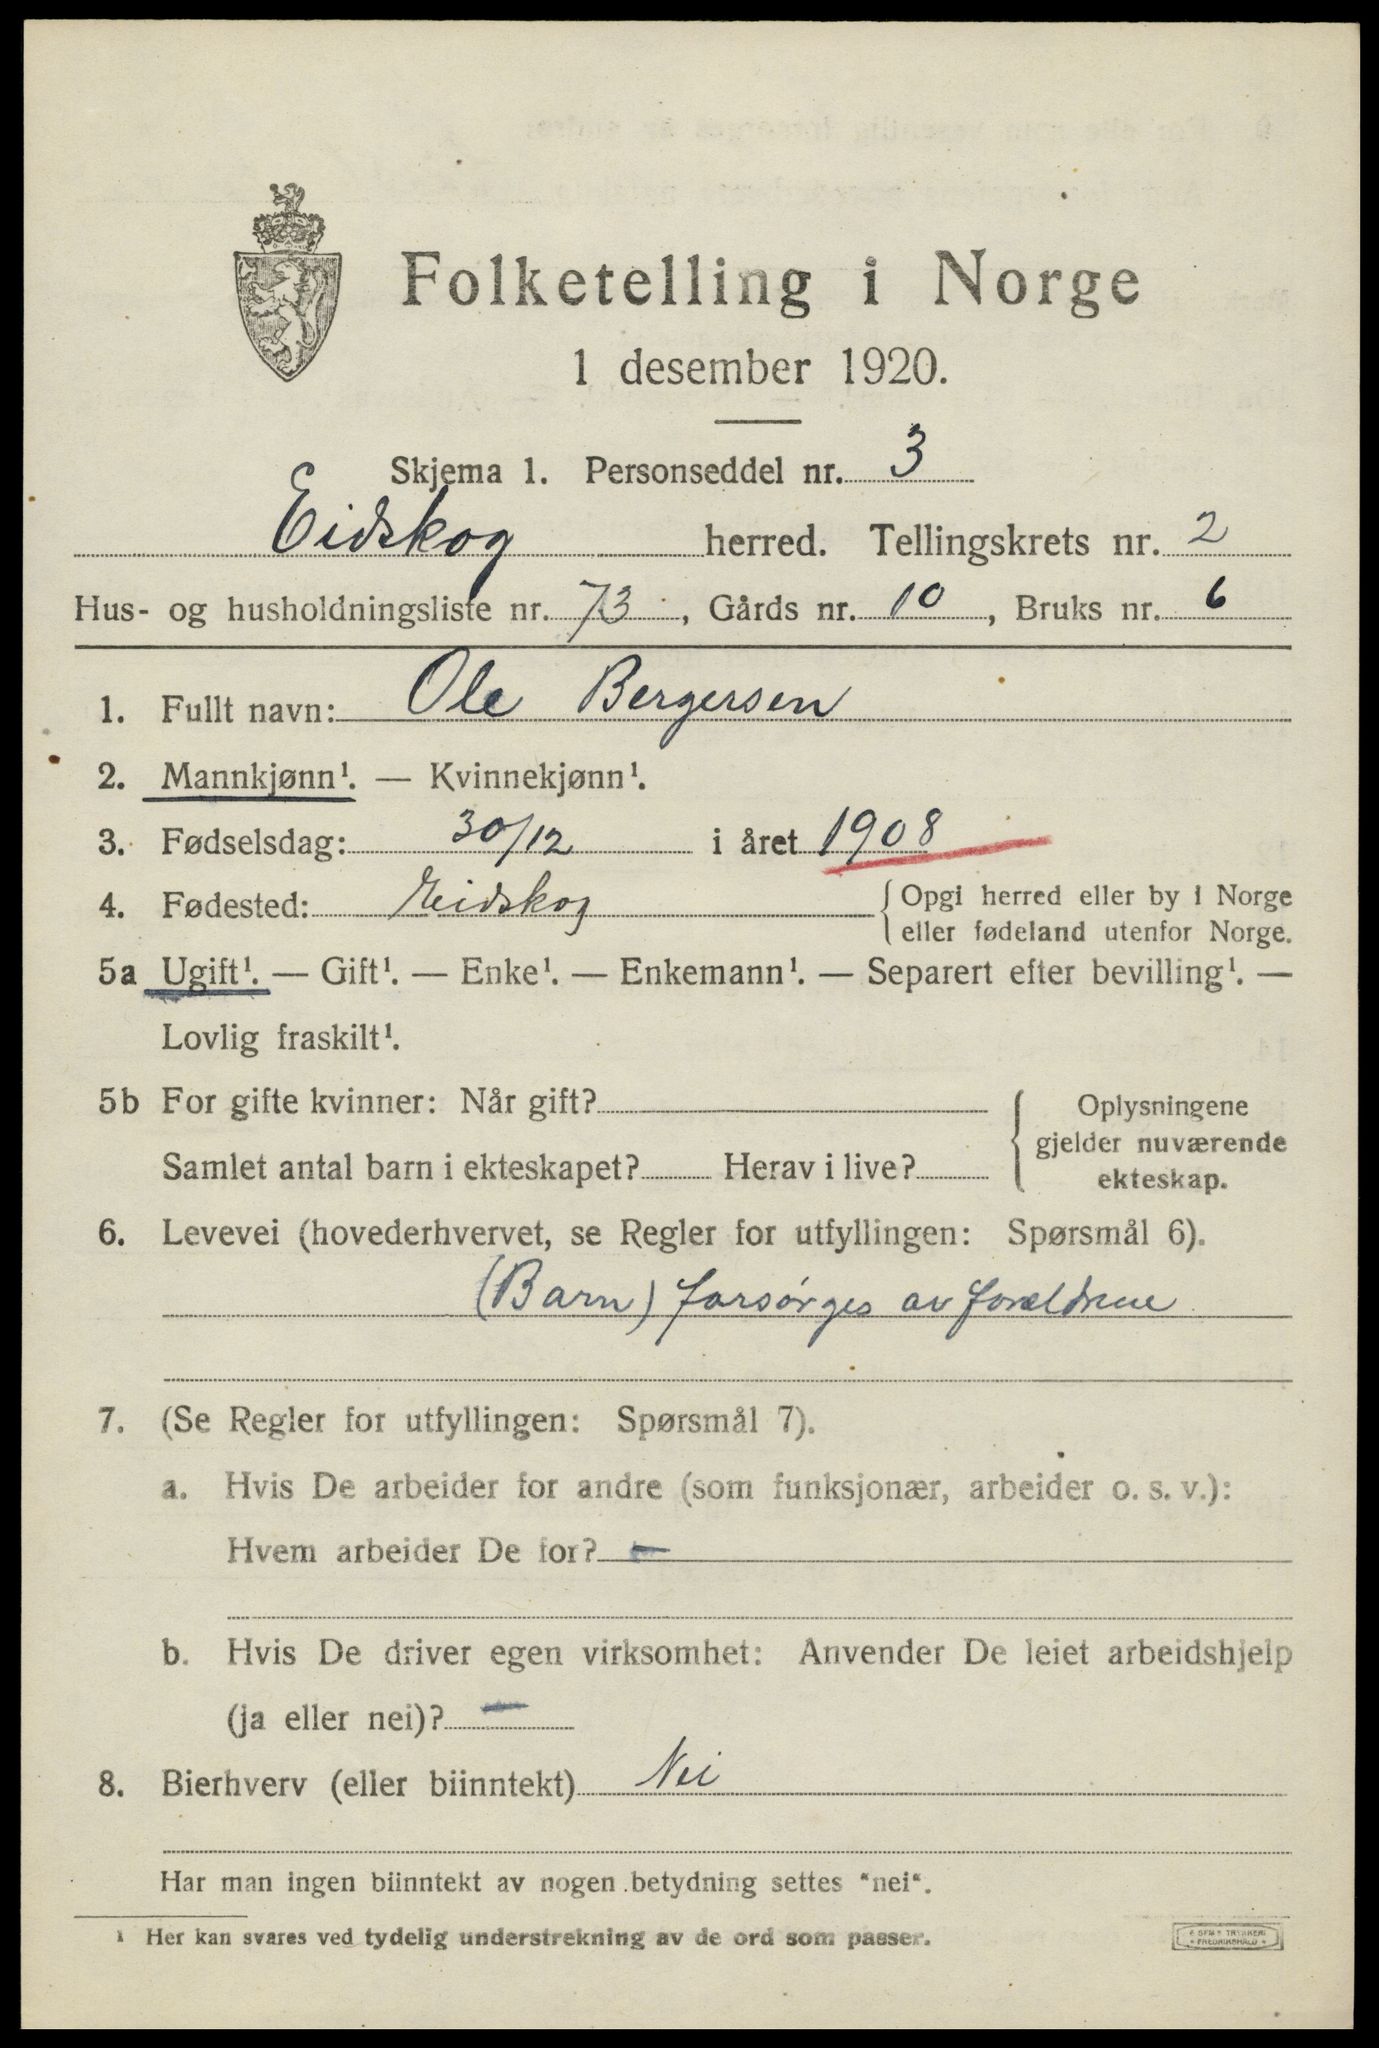 Folketelling i Norge
1 desember 1920.
Skjema 1. Personseddel nr. 3
Eidskog herred. Tellingskrets nr. 2
Hus- og husholdningsliste nr. 73, Gårds nr. 10, Bruks nr. 6
1. Fullt navn: Ole Bergersen
2. Mannkjønn¹. — Kvinnekjønn¹.
3. Fødselsdag: 30/12 i året 1908
4. Fødested: Eidskog { Opgi herred eller by i Norge
eller fødeland utenfor Norge.
5a Ugift¹. — Gift¹. — Enke¹. — Enkemann¹. — Separert efter bevilling¹. —
Lovlig fraskilt¹.
5b For gifte kvinner: Når gift?
Samlet antal barn i ekteskapet? Herav i live?
{ Oplysningene
gjelder nuværende
ekteskap.
6. Levevei (hovederhvervet, se Regler for utfyllingen: Spørsmål 6).
(Barn) forsørges av forældrene
7. (Se Regler for utfyllingen: Spørsmål 7).
a. Hvis De arbeider for andre (som funksjonær, arbeider o. s. v.):
Hvem arbeider De for? —
b. Hvis De driver egen virksomhet: Anvender De leiet arbeidshjelp
(ja eller nei)? —
8. Bierhverv (eller biinntekt) Nei
Har man ingen biinntekt av nogen betydning settes "nei".
¹ Her kan svares ved tydelig understrekning av de ord som passer.